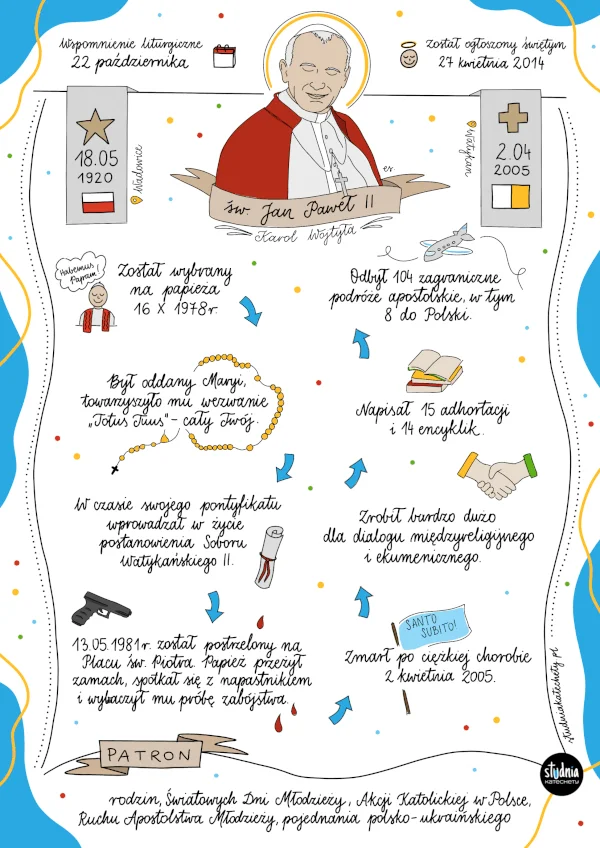 Wspomnienie liturgiczne
22 października
został ogłoszony świętym
27 kwietnia 2014
18.05
1920
Wadowice
2.04
2005
Watykan
es.
św. Jan Paweł II
Karol Wojtyła
Habemus
Papam!
Został wybrany
na papieża
16 X 1978r.
Był oddany Maryi,
towarzyszyło mu wezwanie
„Totus Tuus” - cały Twój.
W czasie swojego pontyfikatu
wprowadzał w życie
postanowienia Soboru
Watykańskiego II.
13.05.1981r. został postrzelony na
Placu św. Piotra. Papież przeżył
zamach, spotkał się z napastnikiem
i wybaczył mu próbę zabójstwa.
SANTO
SUBITO!
Zmarł po ciężkiej chorobie
2 kwietnia 2005.
Zrobił bardzo dużo
dla dialogu międzyreligijnego
i ekumenicznego.
Napisał 15 adhortacji
i 14 encyklik.
Odbył 104 zagraniczne
podróże apostolskie, w tym
8 do Polski.
studniakatechety.pl
PATRON
studnia
KATECHETY
rodzin, Światowych Dni Młodzieży, Akcji Katolickiej w Polsce,
Ruchu Apostolstwa Młodzieży, pojednania polsko-ukraińskiego